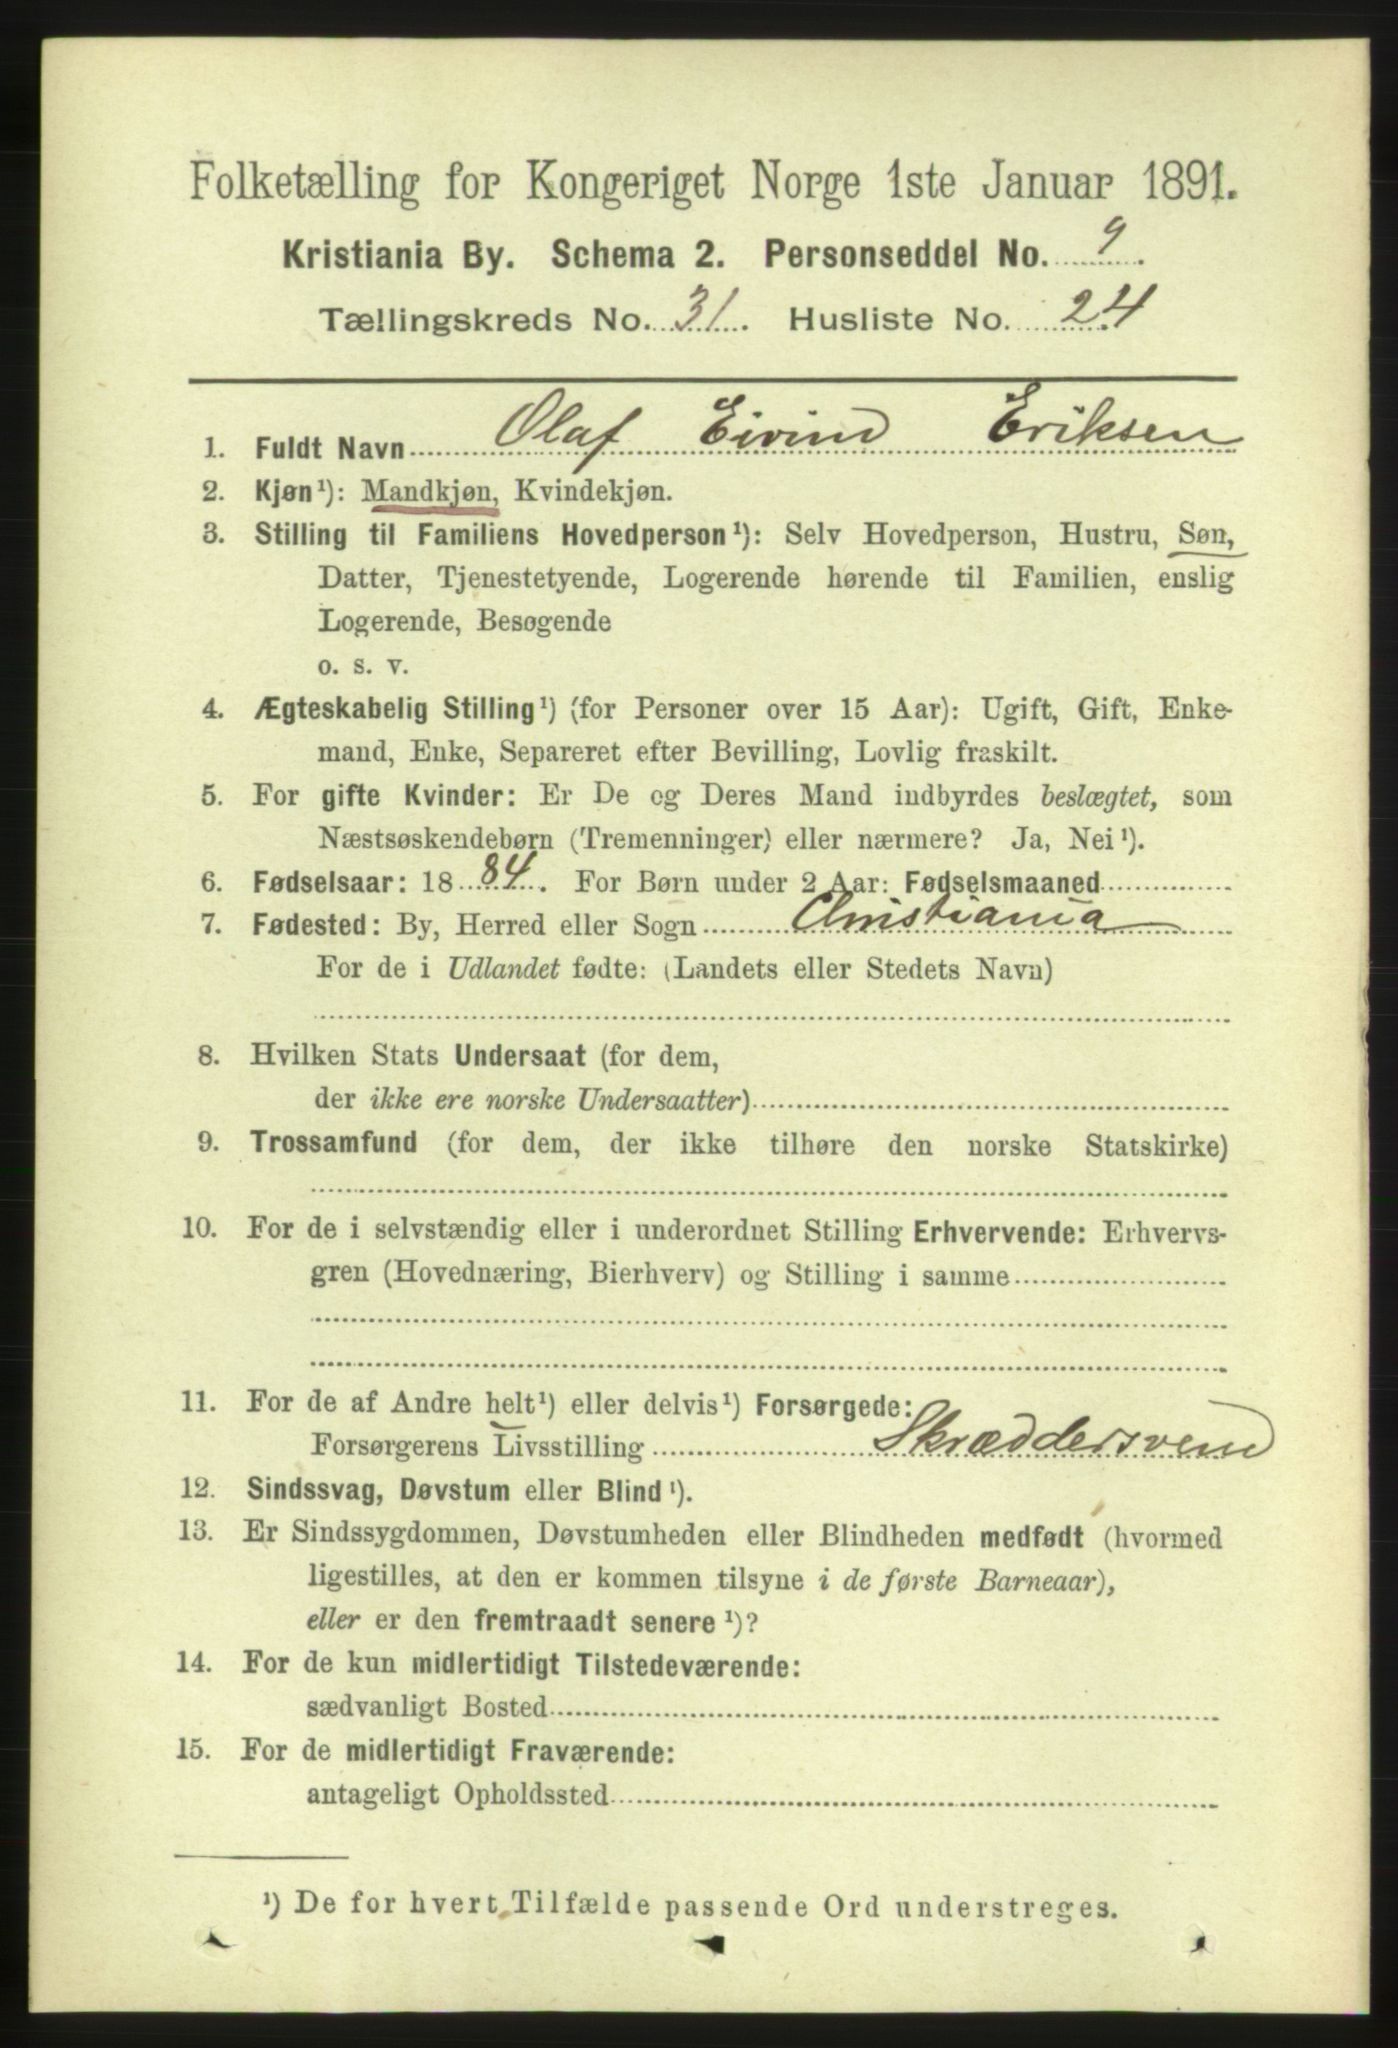 Folketælling for Kongeriget Norge 1ste Januar 1891.
Kristiania By. Schema 2. Personseddel No. 9.
Tællingskreds No. 31. Husliste No. 24
1. Fuldt Navn Olaf Eivind Eriksen
2. Kjøn¹): Mandkjøn, Kvindekjøn.
3. Stilling til Familiens Hovedperson¹): Selv Hovedperson, Hustru, Søn,
Datter, Tjenestetyende, Logerende hørende til Familien, enslig
Logerende, Besøgende
o. s. v.
4. Ægteskabelig Stilling¹) (for Personer over 15 Aar): Ugift, Gift, Enke-
mand, Enke, Separeret efter Bevilling, Lovlig fraskilt.
5. For gifte Kvinder: Er De og Deres Mand indbyrdes beslægtet, som
Næstsøskendebørn (Tremenninger) eller nærmere? Ja, Nei¹).
6. Fødselsaar: 1884. For Børn under 2 Aar: Fødselsmaaned
7. Fødested: By, Herred eller Sogn Christiania
For de i Udlandet fødte: (Landets eller Stedets Navn)
8. Hvilken Stats Undersaat (for dem,
der ikke ere norske Undersaatter)
9. Trossamfund (for dem, der ikke tilhøre den norske Statskirke)
10. For de i selvstændig eller i underordnet Stilling Erhvervende: Erhvervs-
gren (Hovednæring, Bierhverv) og Stilling i samme
11. For de af Andre helt¹) eller delvis¹) Forsørgede:
Forsørgerens Livsstilling Skræddersvend
12. Sindssvag, Døvstum eller Blind¹).
13. Er Sindssygdommen, Døvstumheden eller Blindheden medfødt (hvormed
ligestilles, at den er kommen tilsyne i de første Barneaar),
eller er den fremtraadt senere¹)?
14. For de kun midlertidigt Tilstedeværende:
sædvanligt Bosted
15. For de midlertidigt Fraværende:
antageligt Opholdssted
¹) De for hvert Tilfælde passende Ord understreges.